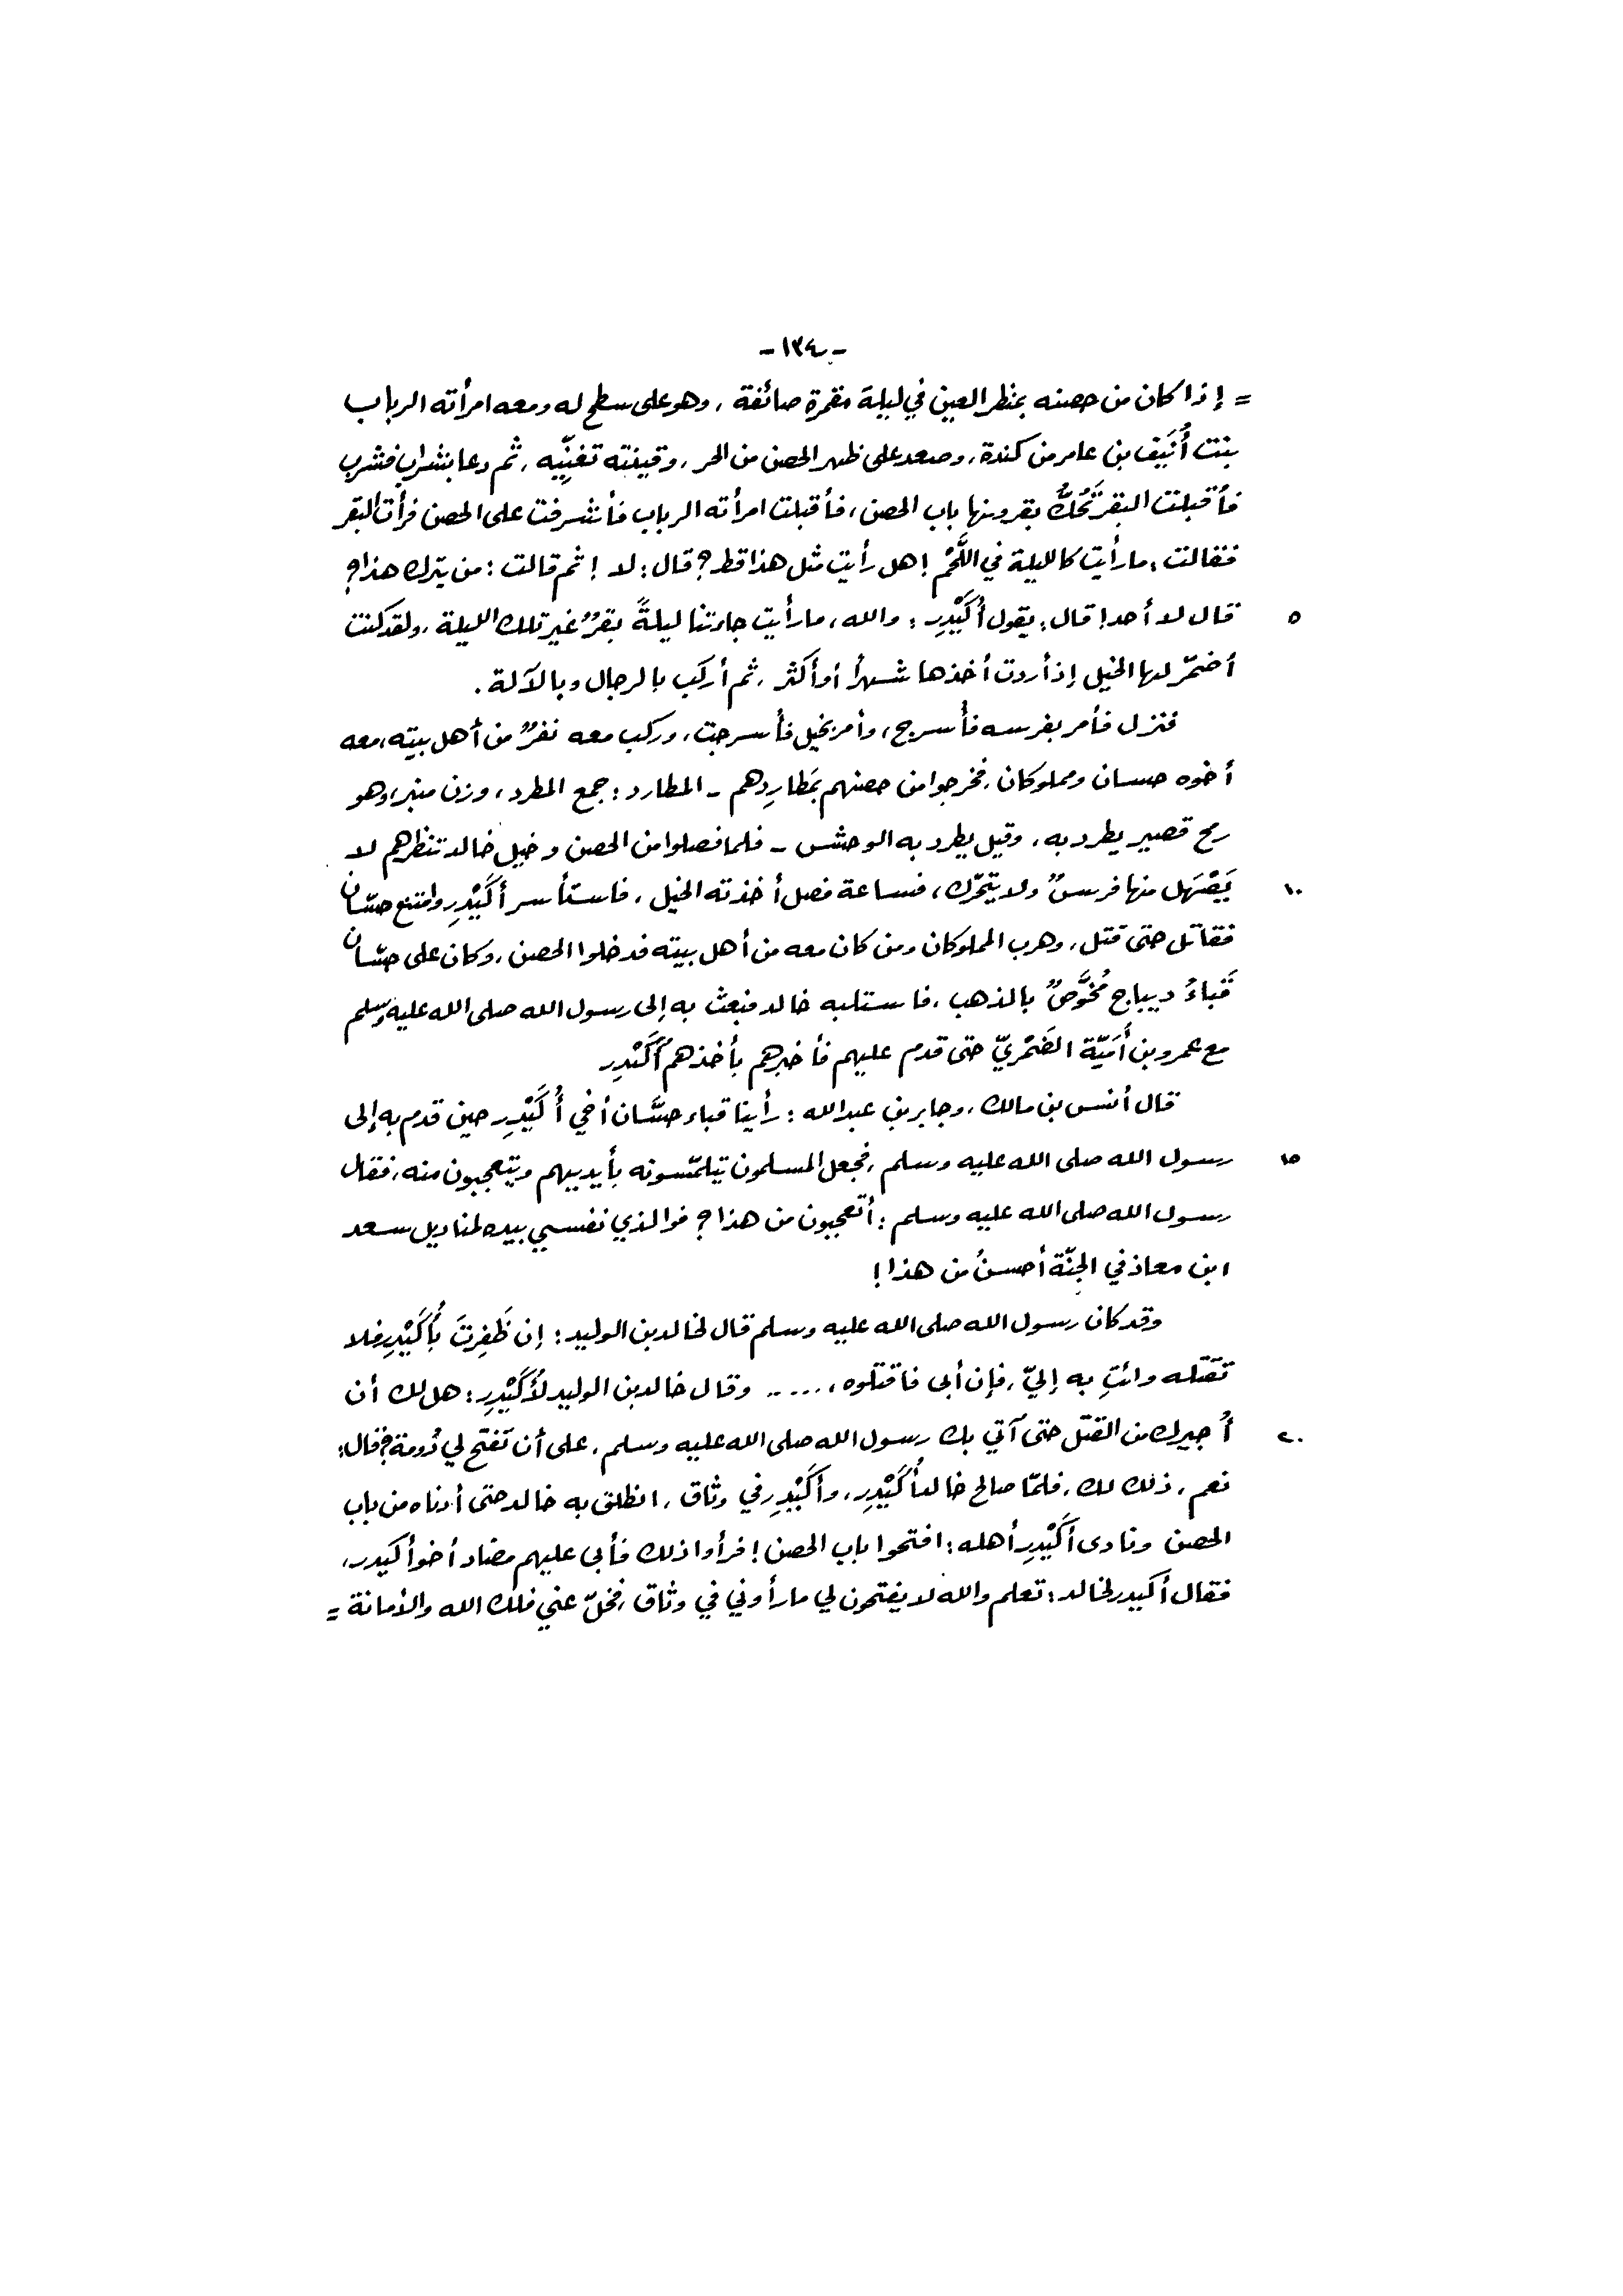 - ١٣٤ -
= إذا كان من حصنه بمنظر العين في ليلة مقمرة صائفة، وهو على سطح له ومعه امرأته الرباب
بنت أُنَيْف بن عامر من كندة، وصعد على ظهر الحصن من الحر، وقينته تغنِّيه، ثم دعا بشراب فشرب
فأقبلت البقر تَحُكُّ بقرونها باب الحصن، فأقبلت امرأته الرباب فأشرفت على الحصن فرأت البقر
فقالت: ما رأيت كالليلة في اللَّحْم! هل رأيت مثل هذا قط؟ قال: لا! ثم قالت: من يترك هذا؟
٥ قال لا أحد! قال: يقول أُكَيْدِر: والله، ما رأيت جاءتنا ليلةً بقرٌ غير تلك الليلة، ولقد كنت
أضمّر لها الخيل إذ أردت أخذها شهراً أو أكثر، ثم أركب بالرجال وبالآلة.
فنزل فأمر بفرسه فأُسرج، وأمر بخيل فأُسرجت، وركب معه نفرٌ من أهل بيته، معه
أخوه حسان ومملوكان، فخرجوا من حصنهم بمَطارِدهم - المطارد: جمع المطرد، وزن منبر، وهو
رمح قصير يطرد به، وقيل يطرد به الوحش - فلما فصلوا من الحصن وخيل خالد تنظرهم لا
١٠ يَصْهَل منها فرسٌ ولا يتحرّك، فساعة فصل أخذته الخيل، فاستأسر أُكَيْدِر وامتنع حسّان
فقاتل حتى قتل، وهرب المملوكان ومن كان معه من أهل بيته فدخلوا الحصن، وكان على حسّان
قَباءُ ديباج مُخَوَّصٌ بالذهب، فاستلبه خالد فبعث به إلى رسول الله صلى الله عليه وسلم
مع عمرو بن أُمَيّة الضَمْريّ حتى قدم عليهم فأخبرهم بأخذهم أُكَيْدِر
قال أنس بن مالك، وجابر بن عبد الله: رأينا قباء حسَّان أخي أُكَيْدِر حين قدم به إلى
١٥ رسول الله صلى الله عليه وسلم، فجعل المسلمون يتلمّسونه بأيديهم ويتعجبون منه، فقال
رسول الله صلى الله عليه وسلم: أتعجبون من هذا؟ فوالذي نفسي بيده لمناديل سعد
ابن معاذ في الجنّة أحسنُ من هذا!
وقد كان رسول الله صلى الله عليه وسلم قال لخالد بن الوليد: إن ظَفِرتَ بأُكَيْدِر فلا
تقتله وائتِ به إليّ، فإن أبى فاقتلوه، ..... وقال خالد بن الوليد لأُكَيْدِر: هل لك أن
٢٠ أُجيرك من القتل حتى آتي بك رسول الله صلى الله عليه وسلم، على أن تفتح لي دُومة؟ قال:
نعم، ذلك لك، فلمّا صالح خالد أُكَيْدِر، وأُكَيْدِر في وثاق، انطلق به خالد حتى أدناه من باب
الحصن ونادى أُكَيْدِر أهله: افتحوا باب الحصن! فرأوا ذلك فأبى عليهم مضاد أخو أكيدر،
فقال أكيدر لخالد: تعلم والله لا يفتحون لي ما رأوني في وثاق، فخلّ عني فلك الله والأمانة =